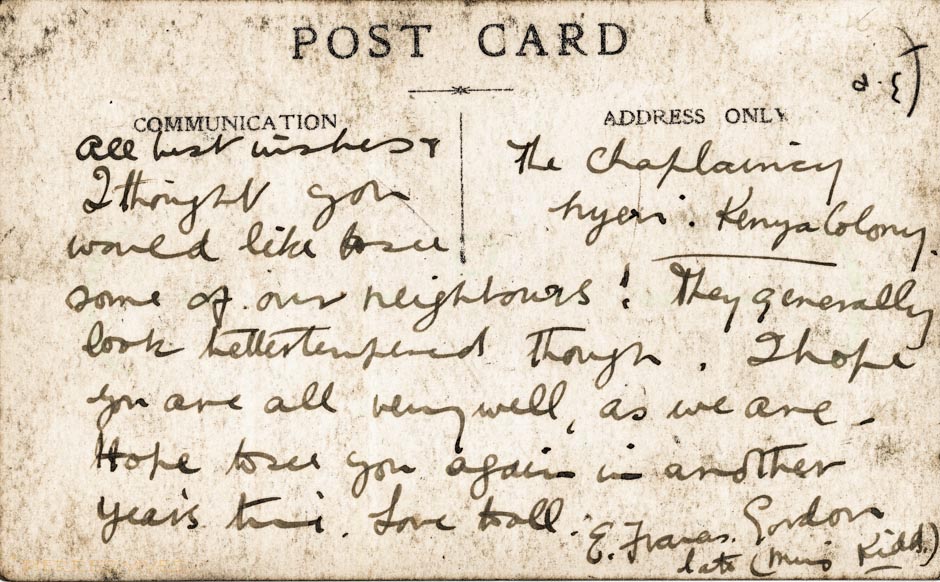 POST CARD
COMMUNICATION
ADDRESS ONLY
The Chaplaincy
Nyeri. Kenya Colony.
All best wishes &
I thought you
would like to see
some of our neighbours! They generally
look better tempered though. I hope
you are all very well, as we are -
Hope to see you again in another
year's time. Love to all.
E. Frances. Gordon
late (Miss Kidd.)